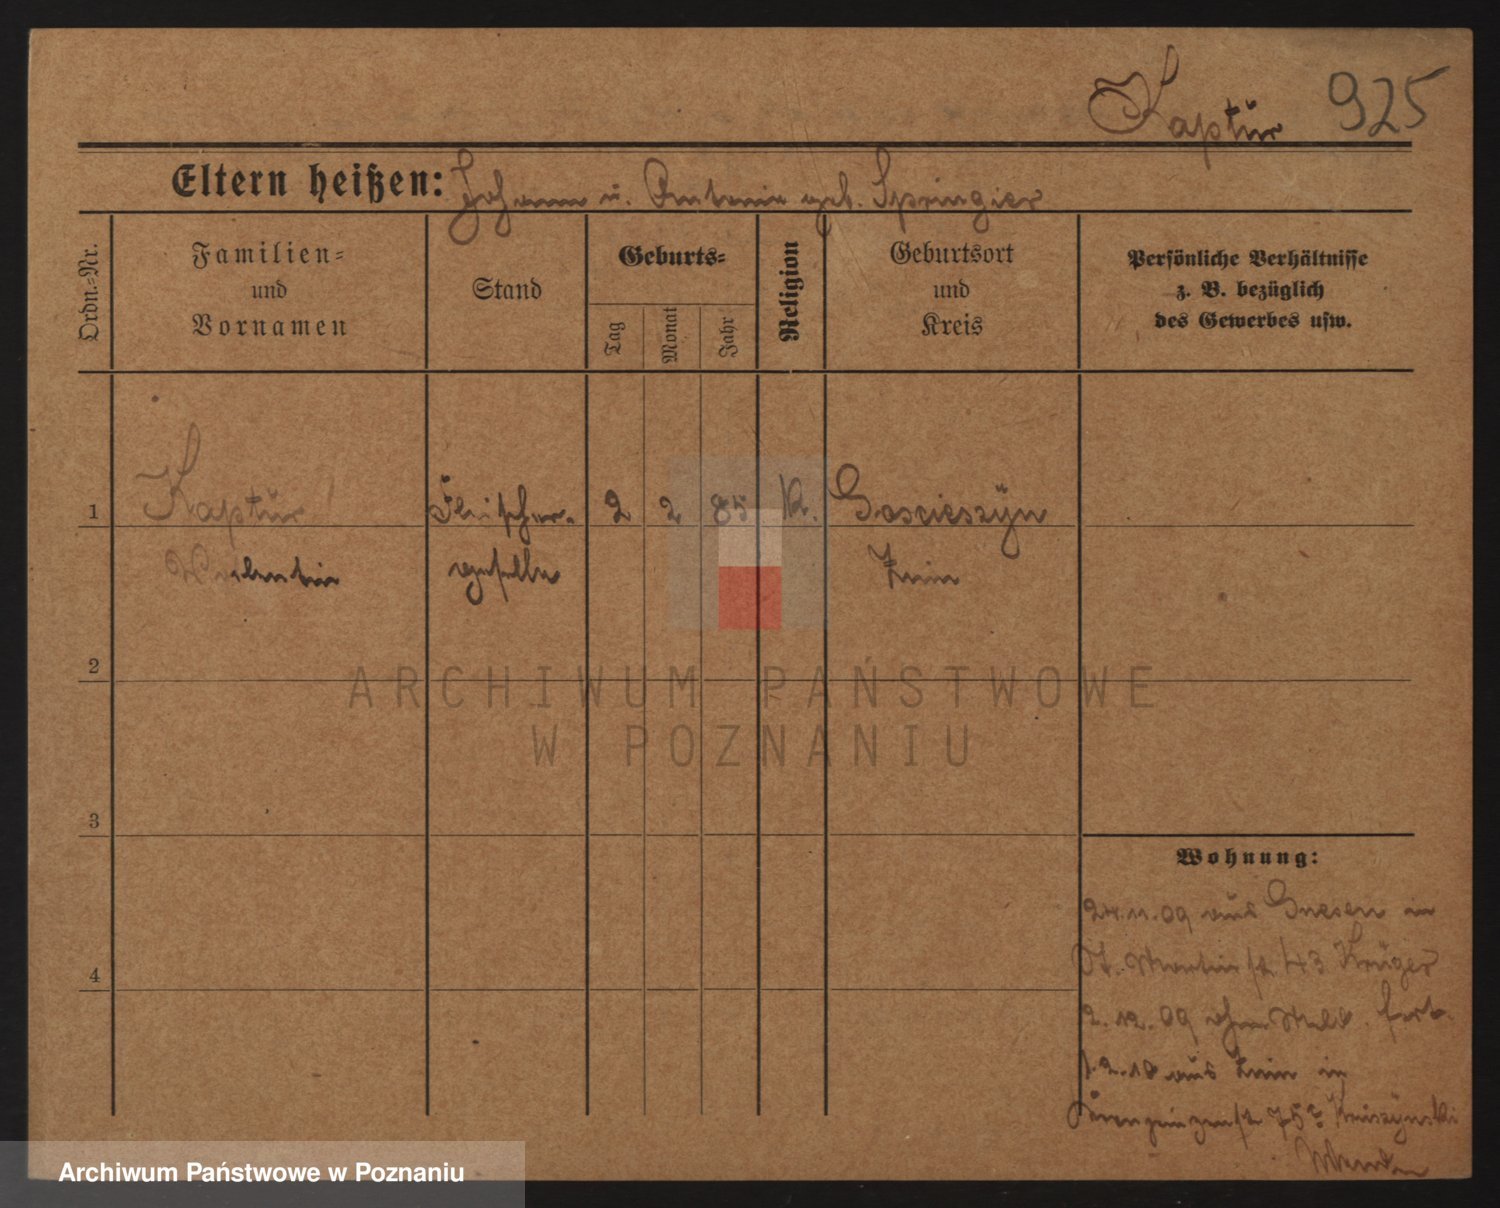 Kaptur 925
Eltern heißen: Johann u. Antonie geb. Springier
Ordn.-Nr.
Familien-
und
Vornamen
Stand
Geburts-
Tag
Monat
Jahr
Religion
Geburtsort
und
Kreis
Persönliche Verhältnisse
z. B. bezüglich
des Gewerbes usw.
1 Kaptur Fleischer- 2 2 85 K. Goscieszyn
Valentin geselle Znin
2
ARCHIWUM PAŃSTWOWE
W POZNANIU
3
4
Wohnung:
24.11.09 aus Gnesen in
St. Martinstr. 43 Krüger
2.12.09 ohne Meld. fort.
1.2.10 aus Znin in
Kronprinzenstr. 75
Archiwum Państwowe w Poznaniu